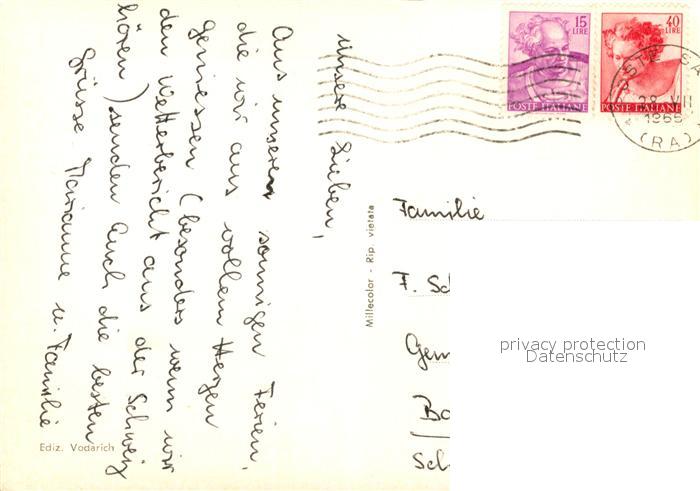 Unsere Lieben,
Aus unseren sonnigen Ferien,
die wir aus vollem Herzen
geniessen (besonders wenn wir
den Wetterbericht aus der Schweiz
hören) senden Euch die besten
Grüsse Marianne u. Familie
Ediz. Vodarich
Millecolor - Rip. vietata
15
LIRE
POSTE ITALIANE
40
LIRE
POSTE ITALIANE
28 VII
1965
(RA)
Familie
F. Sch
Gem
Ba
Sch
privacy protection
Datenschutz